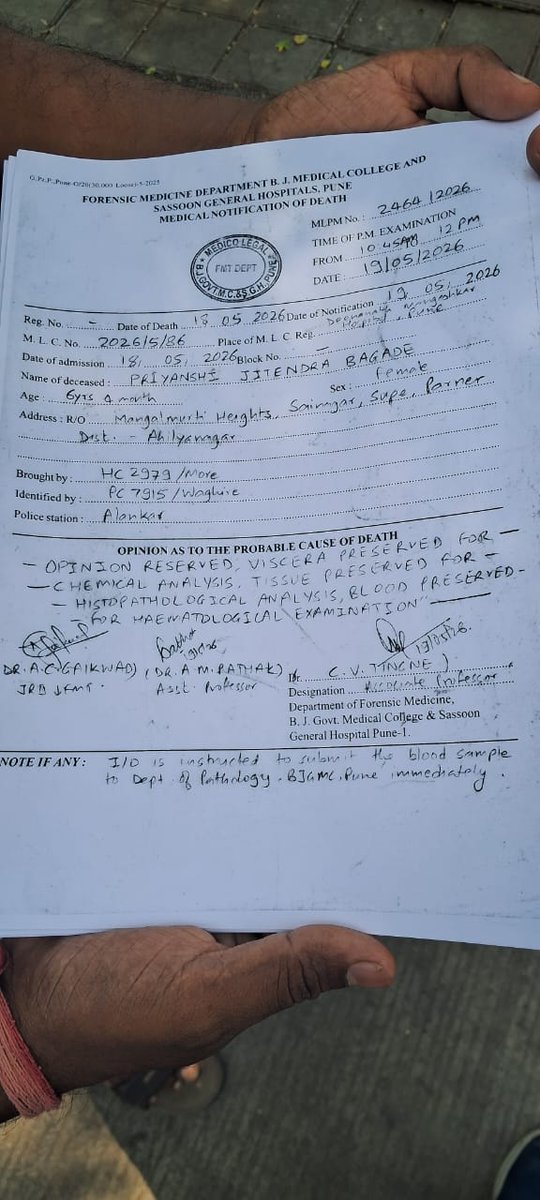 G.Pr.P., Pune-O/20(30,000 Loose)-5-2025
FORENSIC MEDICINE DEPARTMENT B. J. MEDICAL COLLEGE AND
SASSOON GENERAL HOSPITALS, PUNE
MEDICAL NOTIFICATION OF DEATH
MLPM No. : 2464/2026
TIME OF P.M. EXAMINATION
FROM 10.45AM 12 PM
DATE : 19/05/2026
MEDICO LEGAL
FMT DEPT
B.J.GOVT.M.C.&S.G.H.PUNE
Reg. No. - Date of Death 18.05.2026 Date of Notification 19.05.2026
M. L. C. No. 2026/5/86 Place of M. L. C Reg. Mangeshkar Hospital, Pune
Date of admission 18.05.2026 Block No. -
Name of deceased : PRIYANSHI JITENDRA BAGADE
Age : 6yrs 4 month Sex : Female
Address : R/O Mangalmurti Heights, Sainagar, Supe, Parner
Dist. - Ahilyanagar
Brought by : HC 2979/More
Identified by : PC 7915/
Police station : Alankar
OPINION AS TO THE PROBABLE CAUSE OF DEATH
- OPINION RESERVED, VISCERA PRESERVED FOR -
- CHEMICAL ANALYSIS, TISSUE PRESERVED FOR -
- HISTOPATHOLOGICAL ANALYSIS, BLOOD PRESERVED -
FOR HAEMATOLOGICAL EXAMINATION"
19/05/26.
(DR. A.C. GAIKWAD) (DR. A.M. PATHAK) Dr. C.V.
Asst. Professor Designation Associate Professor
Department of Forensic Medicine,
B. J. Govt. Medical College & Sassoon
General Hospital Pune-1.
NOTE IF ANY : I/O is instructed to submit the blood sample
to Dept of Pathology. BJGMC, Pune immediately.